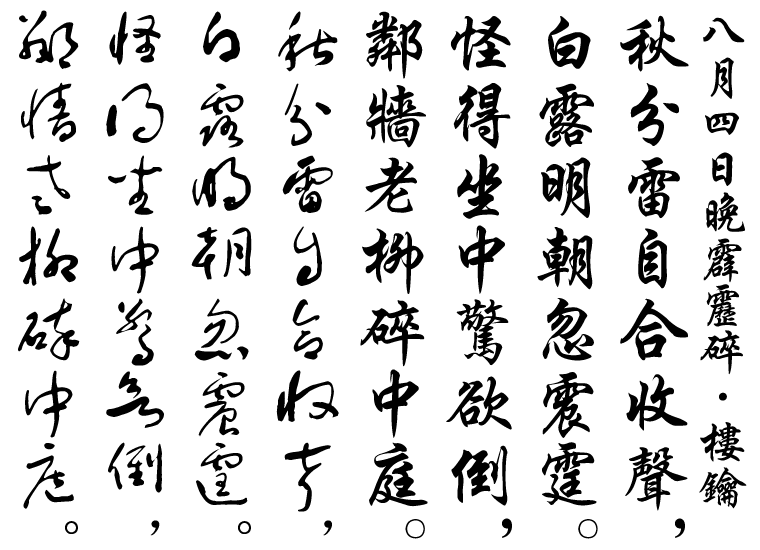 八月四日晚霹靂碎·樓鑰
秋分雷自合收聲，
白露明朝忽震霆。
怪得坐中驚欲倒，
鄰牆老柳碎中庭。
秋分雷自合收聲，
白露明朝忽震霆。
怪得坐中驚欲倒，
鄰牆老柳碎中庭。